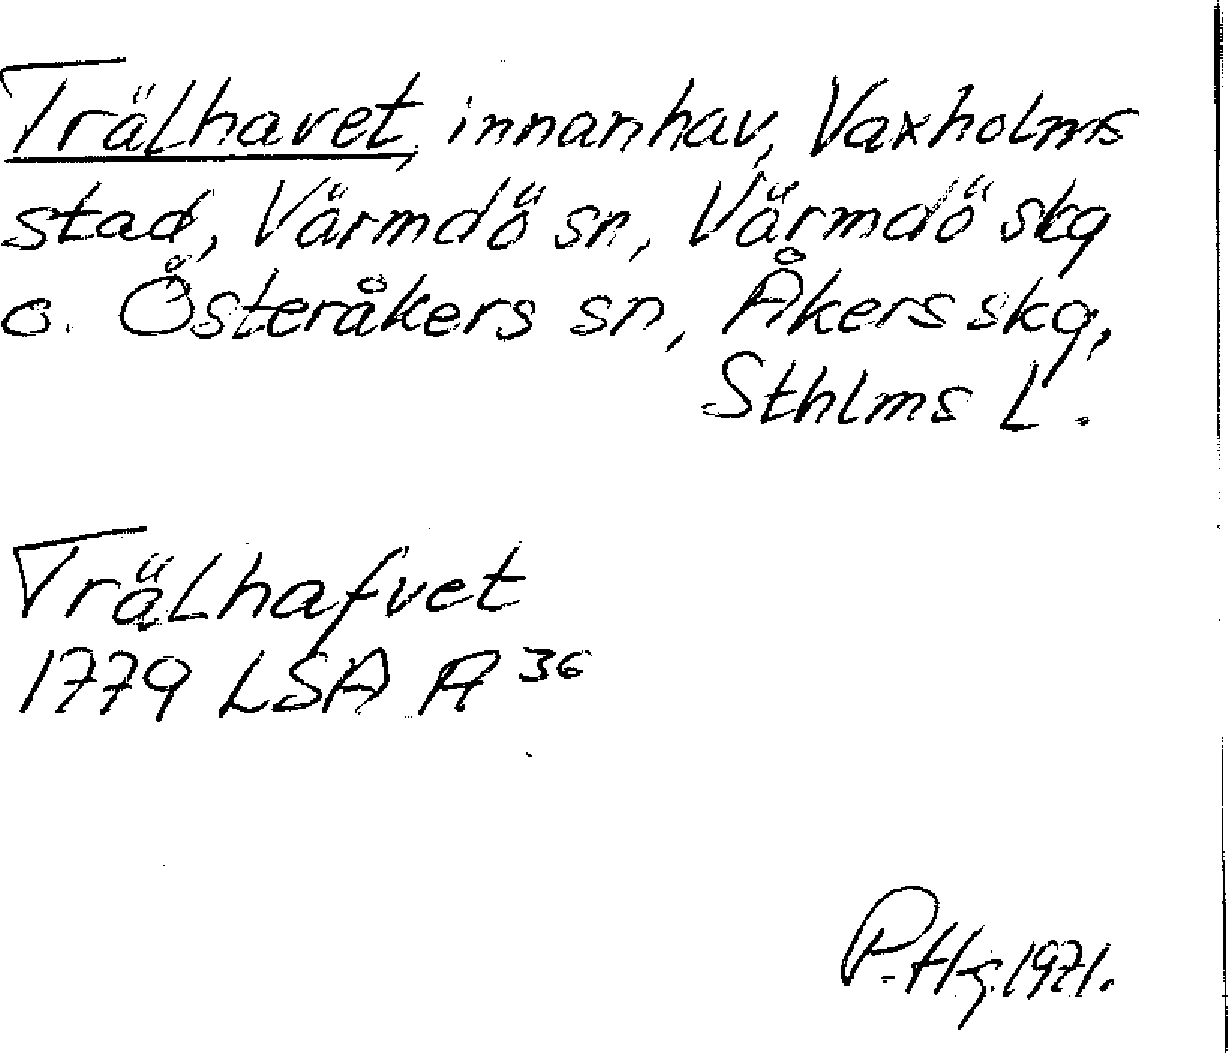 Trälhavet, innanhav, Vaxholms
stad, Värmdö sn, Värmdö skg
o. Österåkers sn, Åkers skg,
Sthlms L.
Trälhafvet
1779 LSA A 36
P. Hg. 1971.